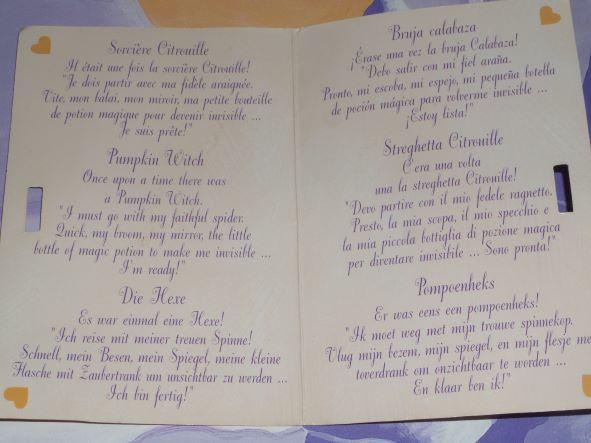 Sorcière Citrouille
Il était une fois la sorcière Citrouille!
"Je dois partir avec ma fidèle araignée.
Vite, mon balai, mon miroir, ma petite bouteille
de potion magique pour devenir invisible ...
Je suis prête!"
Pumpkin Witch
Once upon a time there was
a Pumpkin Witch.
"I must go with my faithful spider.
Quick, my broom, my mirror, the little
bottle of magic potion to make me invisible ...
I'm ready!"
Die Hexe
Es war einmal eine Hexe!
"Ich reise mit meiner treuen Spinne!
Schnell, mein Besen, mein Spiegel, meine kleine
Flasche mit Zaubertrank um unsichtbar zu werden ...
Ich bin fertig!"
Bruja calabaza
¡Érase una vez la bruja Calabaza!
"Debo salir con mi fiel araña.
Pronto, mi escoba, mi espejo, mi pequeña botella
de poción mágica para volverme invisible ...
¡Estoy lista!"
Streghetta Citrouille
C'era una volta
una la streghetta Citrouille!
"Devo partire con il mio fedele ragnetto.
Presto, la mia scopa, il mio specchio e
la mia piccola bottiglia di pozione magica
per diventare invisibile ... Sono pronta!"
Pompoenheks
Er was eens een pompoenheks!
"Ik moet weg met mijn trouwe spinnekop.
Vlug mijn bezem, mijn spiegel, en mijn flesje me
toverdrank om onzichtbaar te worden ...
En klaar ben ik!"